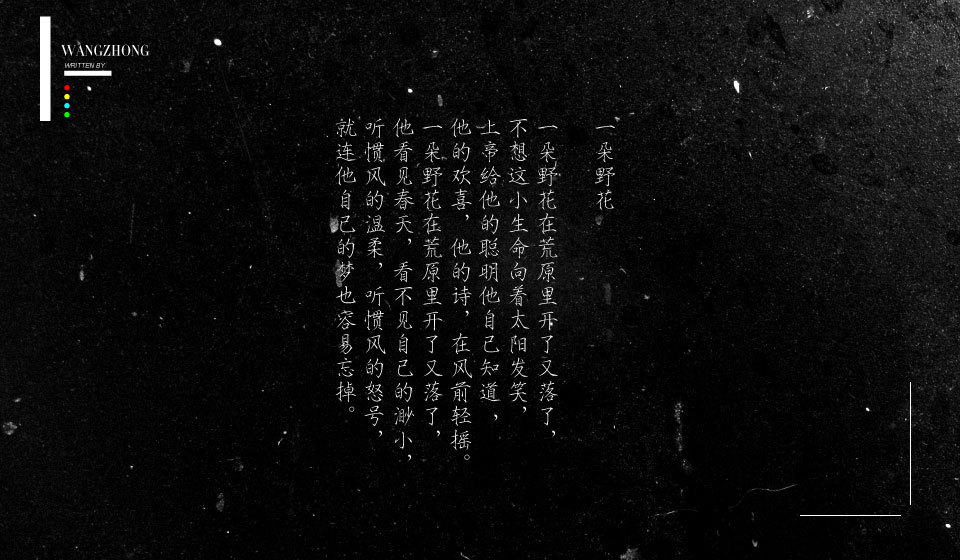 WANGZHONG
WRITTEN BY
一朵野花
一朵野花在荒原里开了又落了，
不想这小生命向着太阳发笑，
上帝给他的聪明他自己知道，
他的欢喜，他的诗，在风前轻摇。
一朵野花在荒原里开了又落了，
他看见春天，看不见自己的渺小，
听惯风的温柔，听惯风的怒号，
就连他自己的梦也容易忘掉。